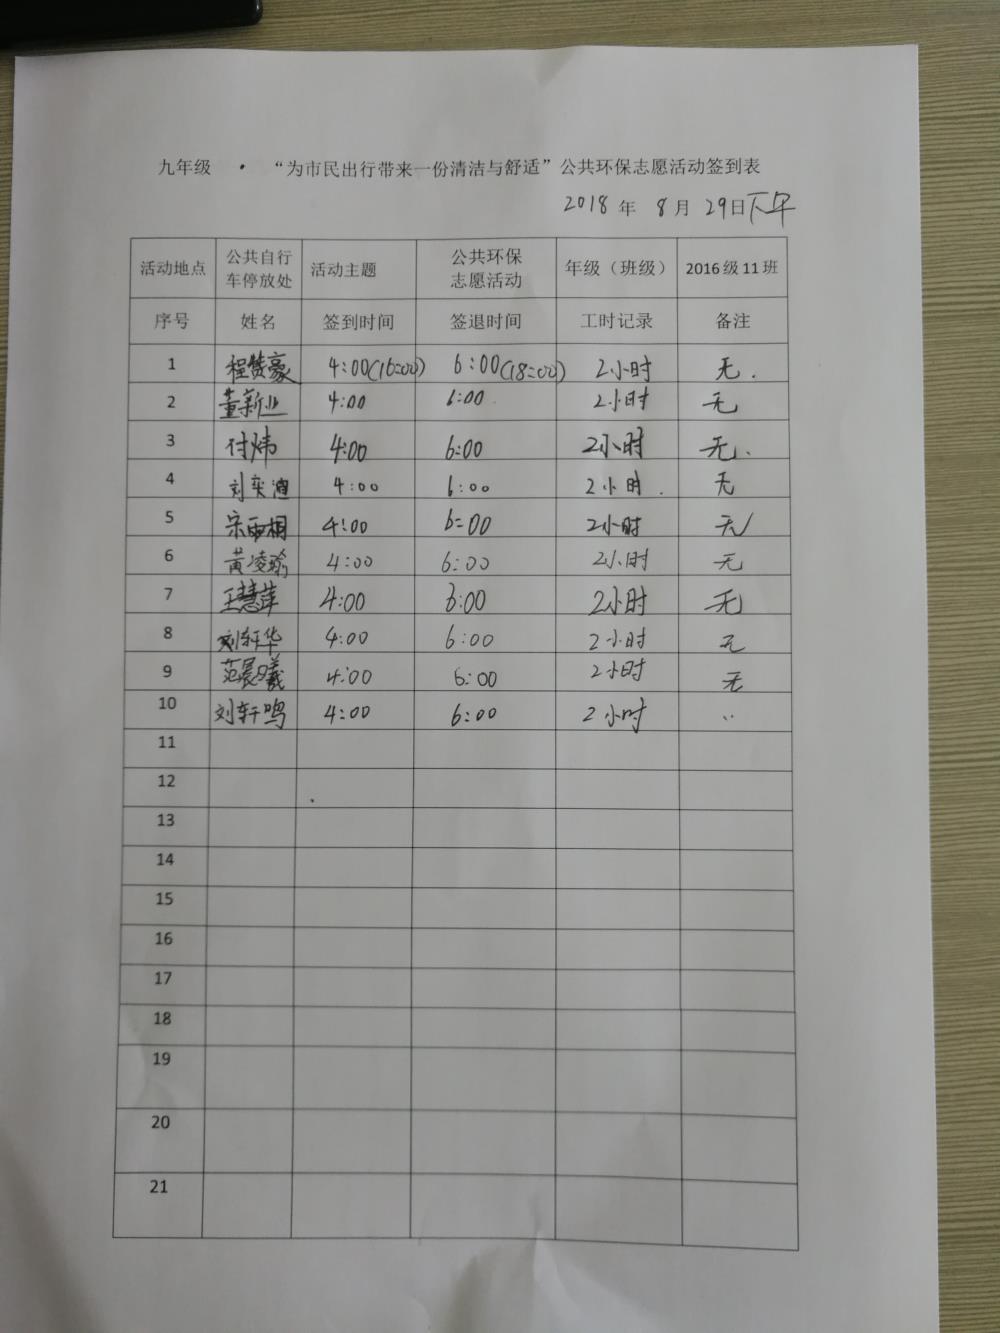 九年级 · “为市民出行带来一份清洁与舒适”公共环保志愿活动签到表
2018 年 8 月 29日下午
活动地点 公共自行车停放处 活动主题 公共环保志愿活动 年级（班级） 2016 级 11 班
序号 姓名 签到时间 签退时间 工时记录 备注
1 程赞豪 4:00(16:00) 6:00(18:00) 2小时 无.
2 董新业 4:00 6:00 2小时 无
3 付炜 4:00 6:00 2小时 无.
4 刘奕 4:00 6:00 2小时. 无
5 宋雨桐 4:00 6:00 2小时 无
6 黄凌瑜 4:00 6:00 2小时 无
7 王慧萍 4:00 6:00 2小时 无
8 刘轩华 4:00 6:00 2小时 无
9 范晨曦 4:00 6:00 2小时 无
10 刘轩鸣 4:00 6:00 2小时 ..
11
12
13
14
15
16
17
18
19
20
21